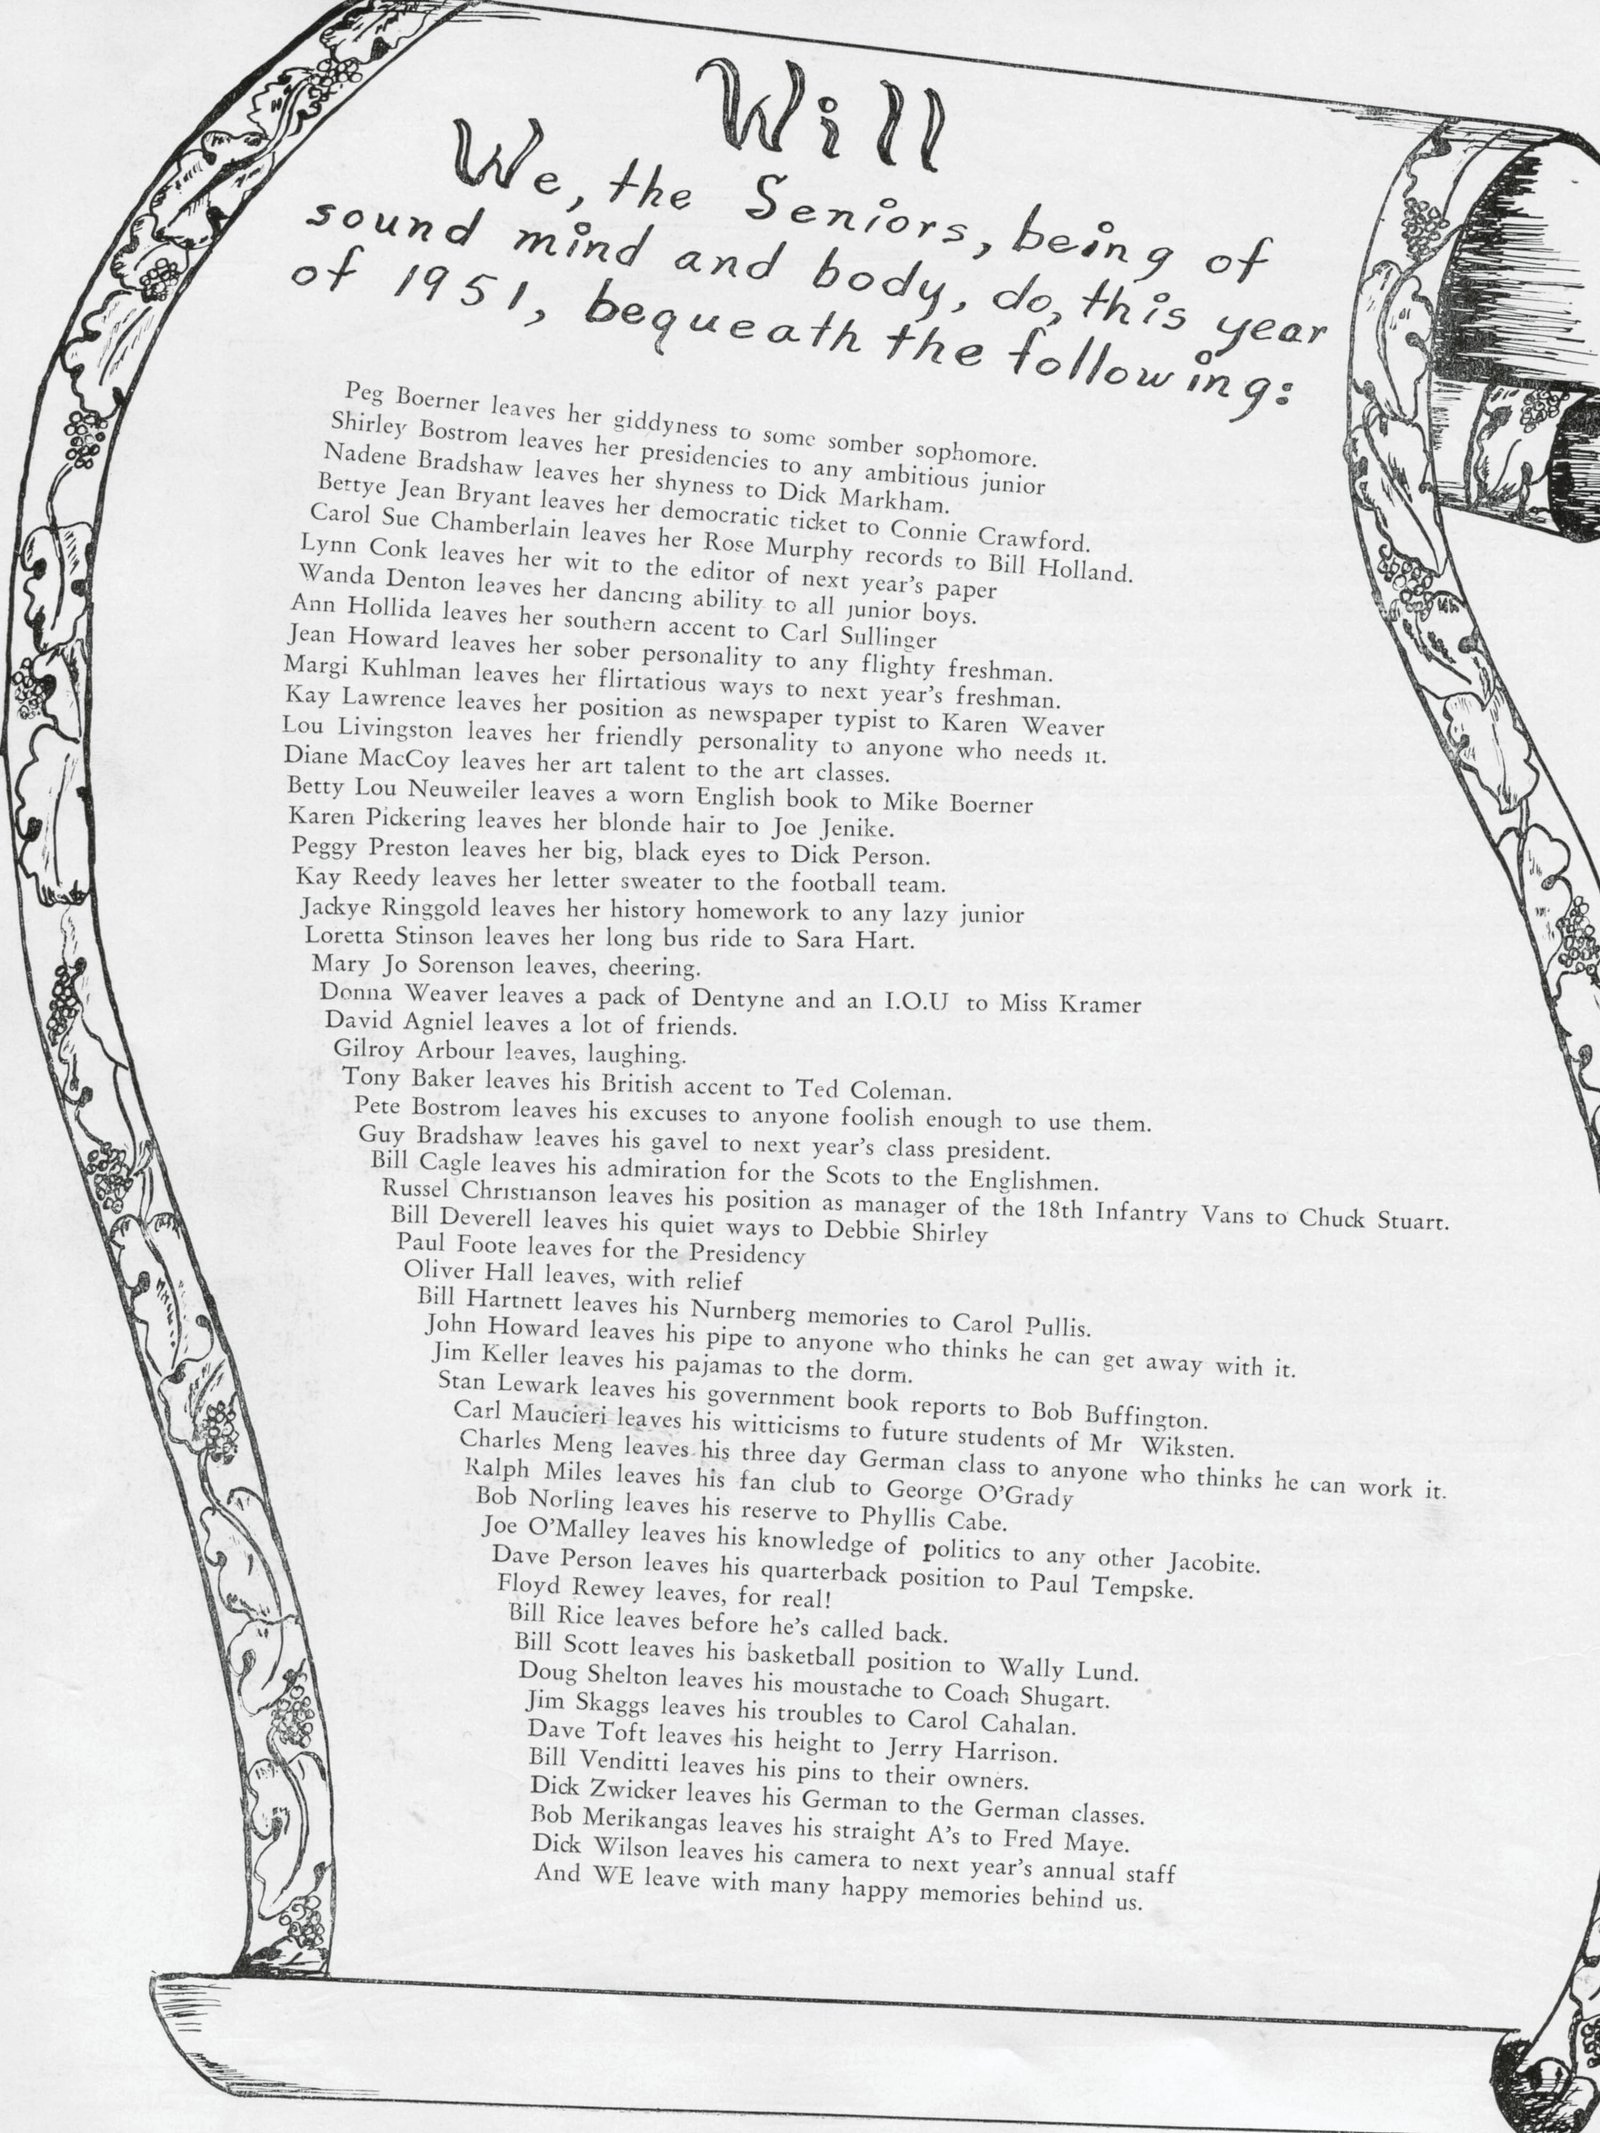 Will
We, the Seniors, being of
sound mind and body, do, this year
of 1951, bequeath the following:
Peg Boerner leaves her giddyness to some somber sophomore.
Shirley Bostrom leaves her presidencies to any ambitious junior
Nadene Bradshaw leaves her shyness to Dick Markham.
Bettye Jean Bryant leaves her democratic ticket to Connie Crawford.
Carol Sue Chamberlain leaves her Rose Murphy records to Bill Holland.
Lynn Conk leaves her wit to the editor of next year's paper
Wanda Denton leaves her dancing ability to all junior boys.
Ann Hollida leaves her southern accent to Carl Sullinger
Jean Howard leaves her sober personality to any flighty freshman.
Margi Kuhlman leaves her flirtatious ways to next year's freshman.
Kay Lawrence leaves her position as newspaper typist to Karen Weaver
Lou Livingston leaves her friendly personality to anyone who needs it.
Diane MacCoy leaves her art talent to the art classes.
Betty Lou Neuweiler leaves a worn English book to Mike Boerner
Karen Pickering leaves her blonde hair to Joe Jenike.
Peggy Preston leaves her big, black eyes to Dick Person.
Kay Reedy leaves her letter sweater to the football team.
Jackye Ringgold leaves her history homework to any lazy junior
Loretta Stinson leaves her long bus ride to Sara Hart.
Mary Jo Sorenson leaves, cheering.
Donna Weaver leaves a pack of Dentyne and an I.O.U to Miss Kramer
David Agniel leaves a lot of friends.
Gilroy Arbour leaves, laughing.
Tony Baker leaves his British accent to Ted Coleman.
Pete Bostrom leaves his excuses to anyone foolish enough to use them.
Guy Bradshaw leaves his gavel to next year's class president.
Bill Cagle leaves his admiration for the Scots to the Englishmen.
Russel Christianson leaves his position as manager of the 18th Infantry Vans to Chuck Stuart.
Bill Deverell leaves his quiet ways to Debbie Shirley
Paul Foote leaves for the Presidency
Oliver Hall leaves, with relief
Bill Hartnett leaves his Nurnberg memories to Carol Pullis.
John Howard leaves his pipe to anyone who thinks he can get away with it.
Jim Keller leaves his pajamas to the dorm.
Stan Lewark leaves his government book reports to Bob Buffington.
Carl Maucieri leaves his witticisms to future students of Mr Wiksten.
Charles Meng leaves his three day German class to anyone who thinks he can work it.
Ralph Miles leaves his fan club to George O'Grady
Bob Norling leaves his reserve to Phyllis Cabe.
Joe O'Malley leaves his knowledge of politics to any other Jacobite.
Dave Person leaves his quarterback position to Paul Tempske.
Floyd Rewey leaves, for real!
Bill Rice leaves before he's called back.
Bill Scott leaves his basketball position to Wally Lund.
Doug Shelton leaves his moustache to Coach Shugart.
Jim Skaggs leaves his troubles to Carol Cahalan.
Dave Toft leaves his height to Jerry Harrison.
Bill Venditti leaves his pins to their owners.
Dick Zwicker leaves his German to the German classes.
Bob Merikangas leaves his straight A's to Fred Maye.
Dick Wilson leaves his camera to next year's annual staff
And WE leave with many happy memories behind us.